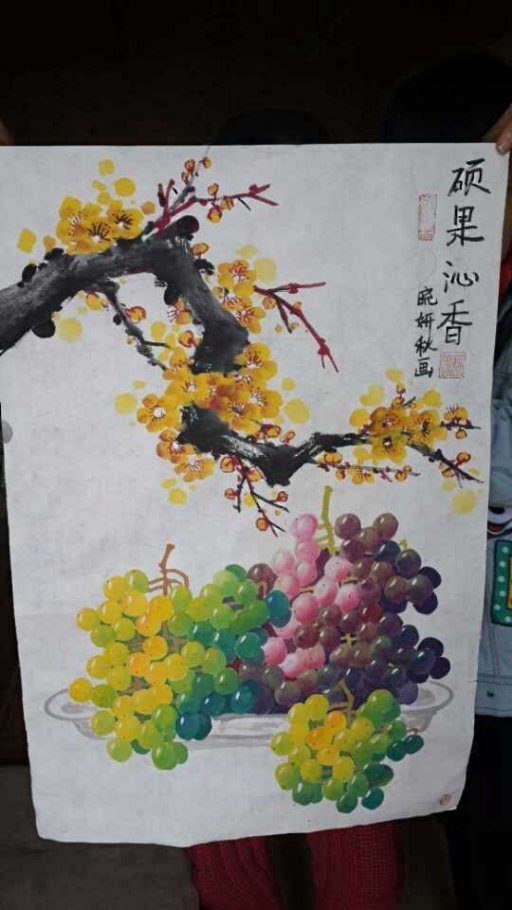 硕果沁香
晓妍秋画